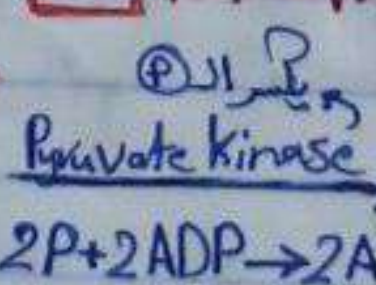 ويكسر ال Ⓟ
Pyruvate Kinase
2P+2ADP→2A